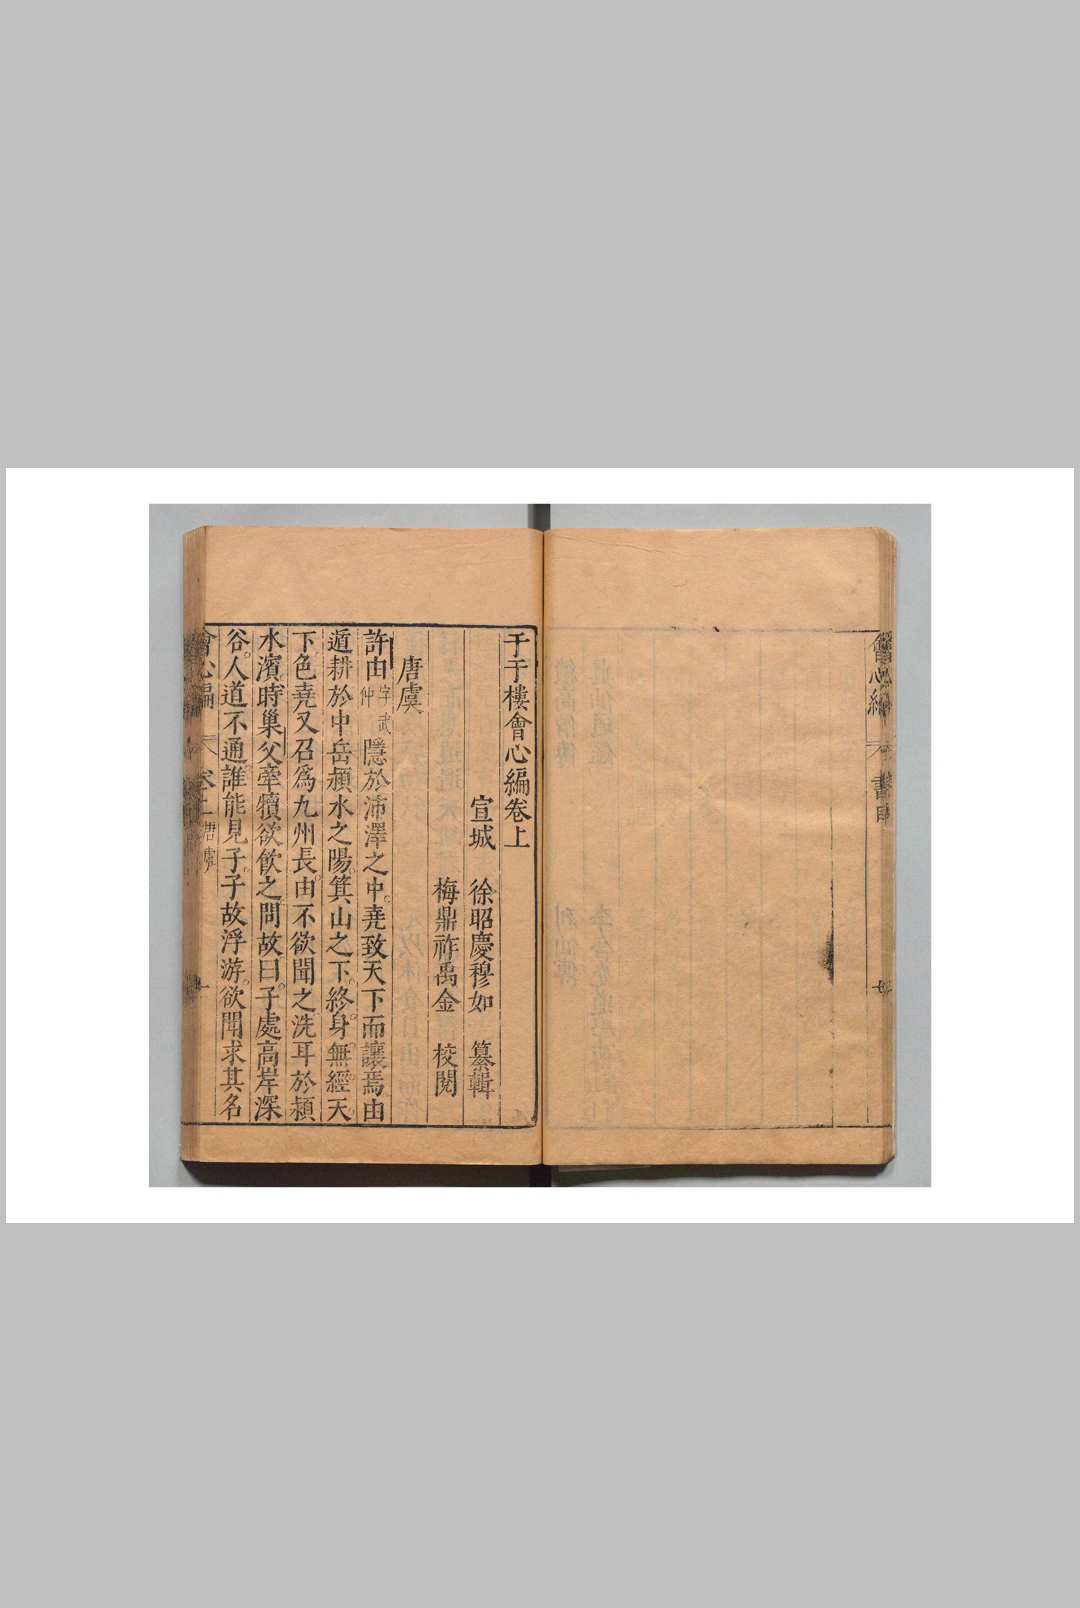 會心編
書目
于于樓會心編卷上
宣城 徐昭慶穆如 纂輯
梅鼎祚禹金 校閱
唐虞
許由字武仲隱於沛澤之中堯致天下而讓焉由
遁耕於中岳潁水之陽箕山之下終身無經天
下色堯又召爲九州長由不欲聞之洗耳於潁
水濱時巢父牽犢欲飲之問故曰子處高岸深
谷人道不通誰能見子子故浮游欲聞求其名
會心編 卷上 唐虞 一